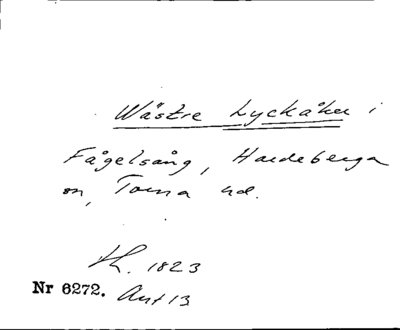 Wästre Lyckåker i
Fågelsång, Hardeberga
sn, Torna hd.
lh. 1823
Nr 6272. Akt 13